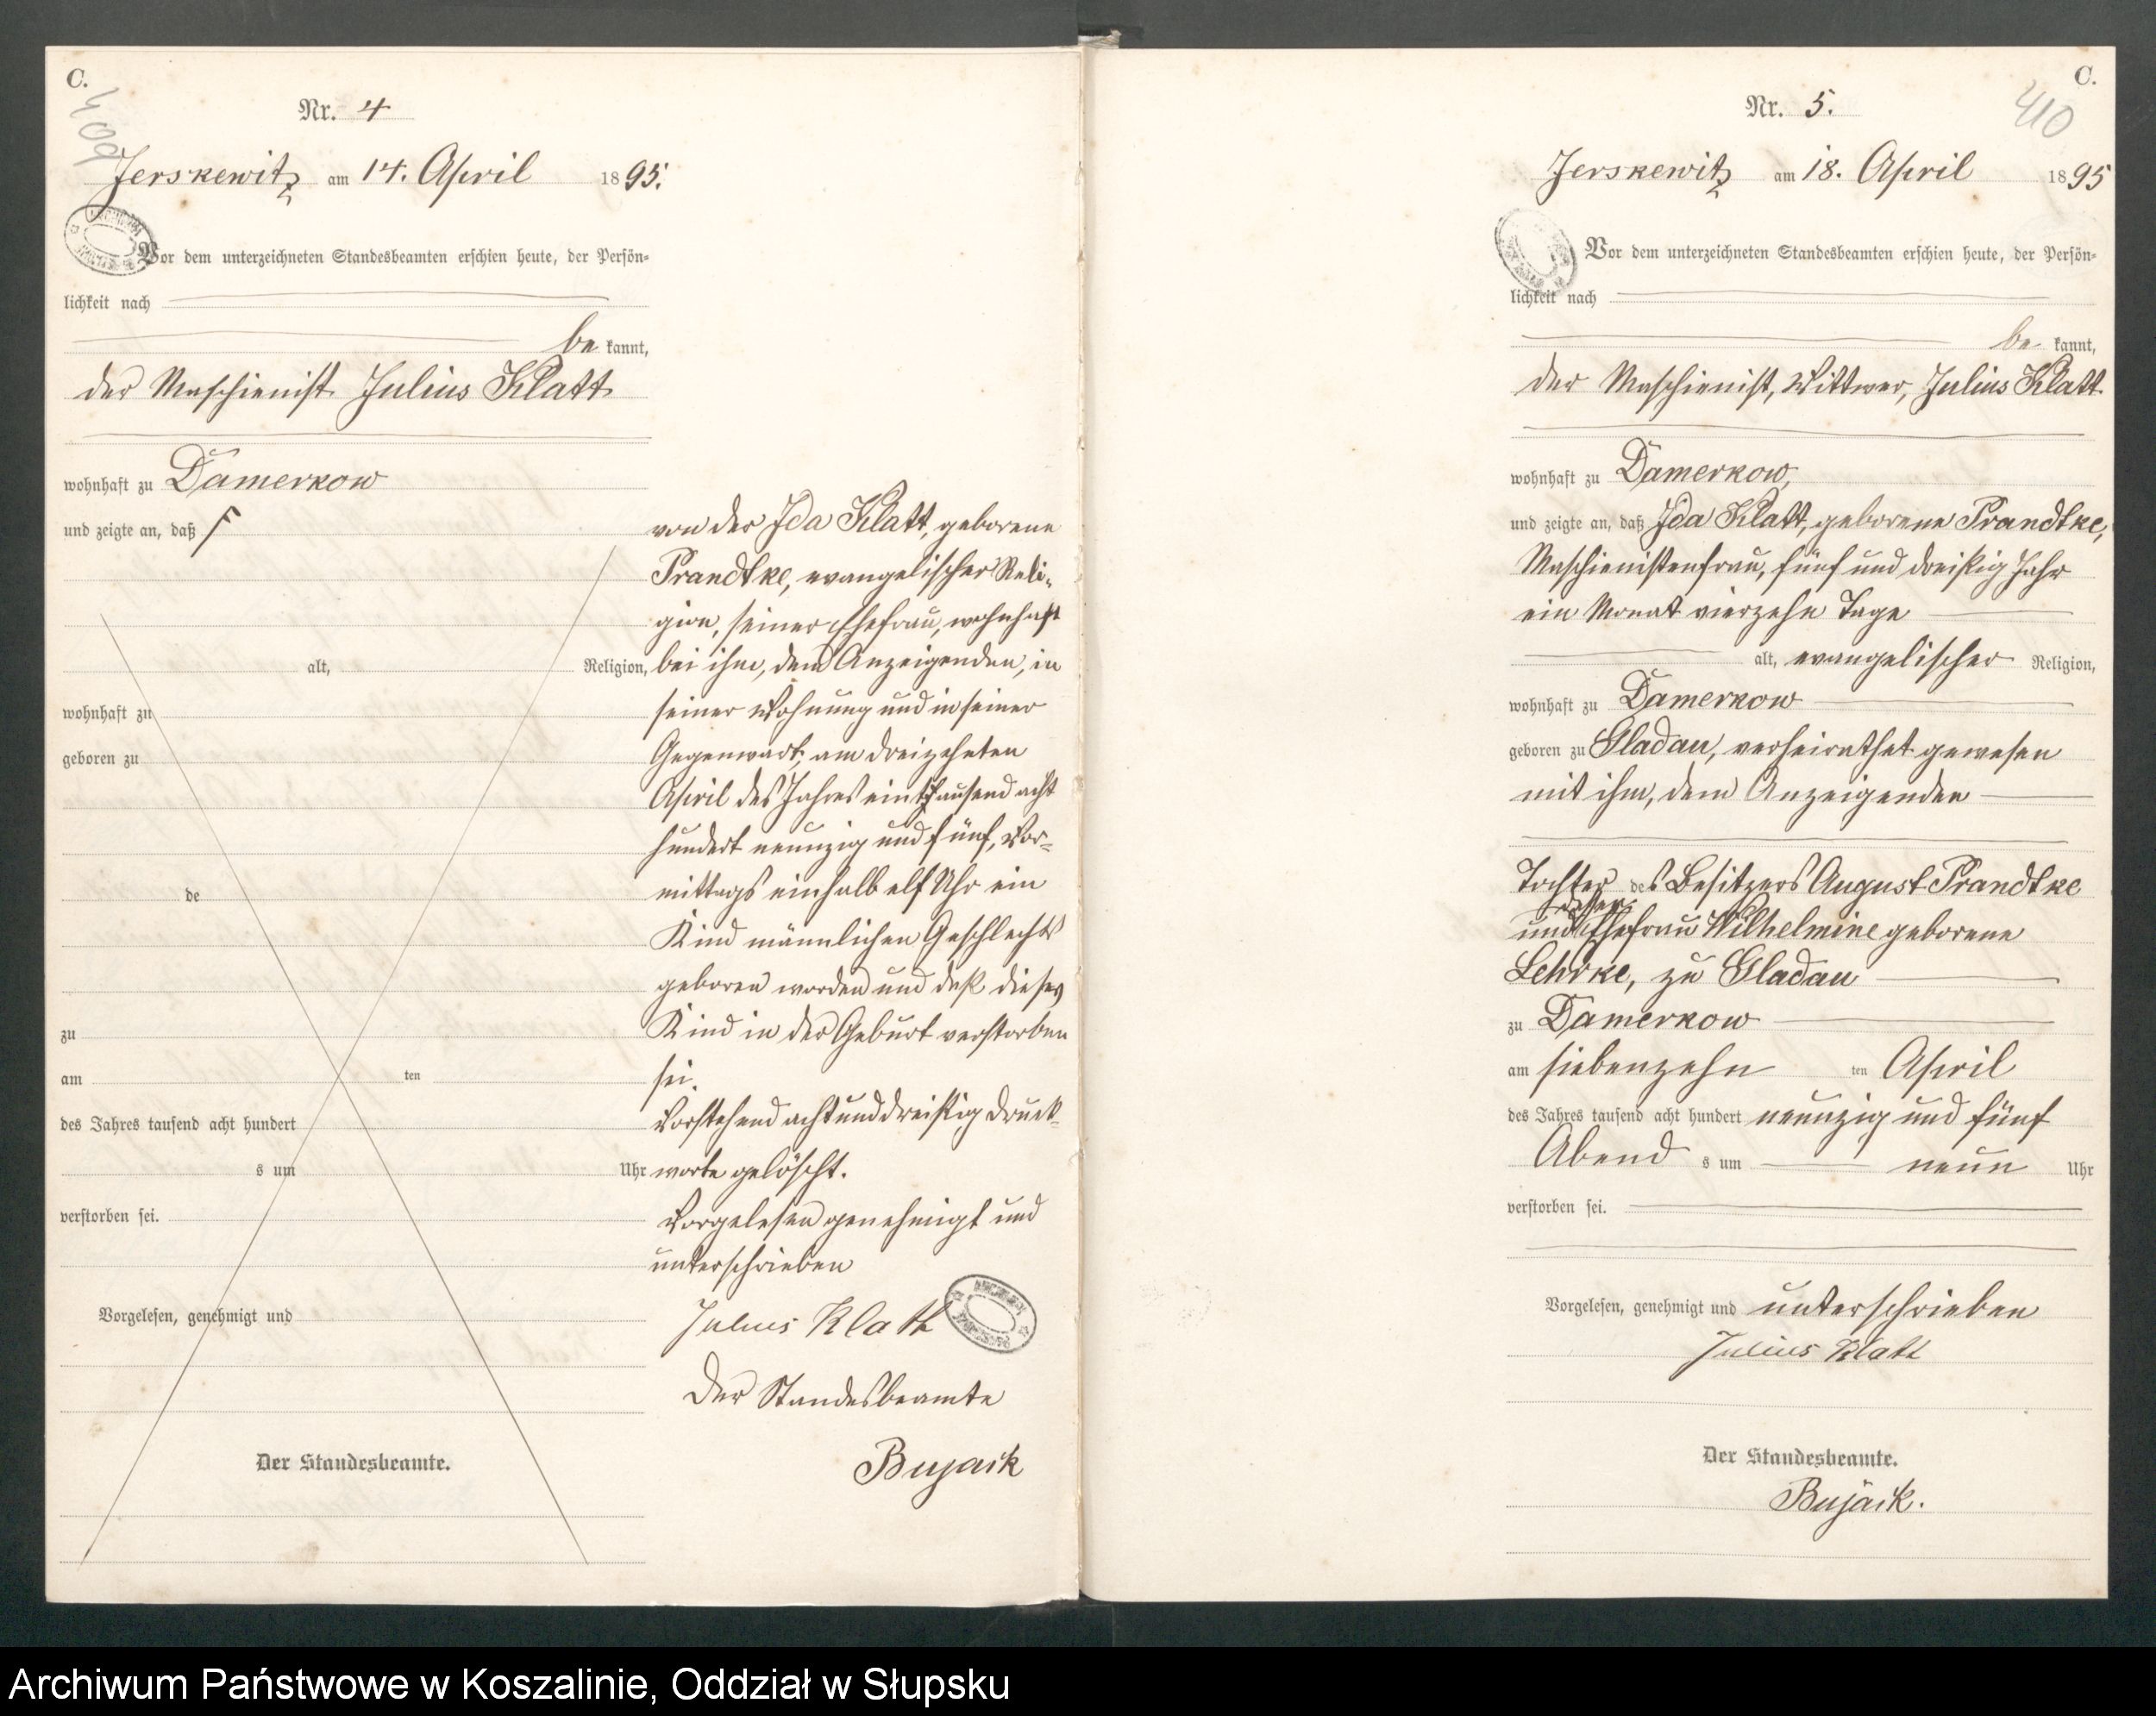 C.
409
Nr. 4
Jerskewitz am 14. April 1895.
Vor dem unterzeichneten Standesbeamten erschien heute, der Persön-
lichkeit nach
be kannt,
der Maschienist Julius Klatt
wohnhaft zu Damerkow
und zeigte an, daß
alt, Religion,
wohnhaft zu
geboren zu
de
zu
am ten
des Jahres tausend acht hundert
s um Uhr
verstorben sei.
Vorgelesen, genehmigt und
Der Standesbeamte.
von der Ida Klatt, geborene
Prandtke, evangelischer Reli-
gion, seiner Ehefrau, wohnhaft
bei ihm, dem Anzeigenden, in
seiner Wohnung und in seiner
Gegenwart, am dreizehnten
April des Jahres eintausend acht
hundert neunzig und fünf, Vor-
mittags einhalb elf Uhr ein
Kind männlichen Geschlechts
geboren worden und daß dieses
Kind in der Geburt verstorben
sei.
Vorstehend achtunddreißig Druck-
worte gelöscht.
Vorgelesen genehmigt und
unterschrieben
Julius Klatt
Der Standesbeamte
Bujack
C.
410
Nr. 5.
Jerskewitz am 18. April 1895
Vor dem unterzeichneten Standesbeamten erschien heute, der Persön-
lichkeit nach
be kannt,
der Maschienist, Wittwer, Julius Klatt
wohnhaft zu Damerkow,
und zeigte an, daß Ida Klatt, geborene Prandtke,
Maschienistenfrau, fünf und dreißig Jahr
ein Monat vierzehn Tage
alt, evangelischer Religion,
wohnhaft zu Damerkow
geboren zu Gladau, verheirathet gewesen
mit ihm, dem Anzeigenden
Tochter des Besitzers August Prandtke
und dessen Ehefrau Wilhelmine geborene
Lehrke, zu Gladau
zu Damerkow
am siebenzehn ten April
des Jahres tausend acht hundert neunzig und fünf
Abend s um neun Uhr
verstorben sei.
Vorgelesen, genehmigt und unterschrieben
Julius Klatt
Der Standesbeamte.
Bujack.
Archiwum Państwowe w Koszalinie, Oddział w Słupsku